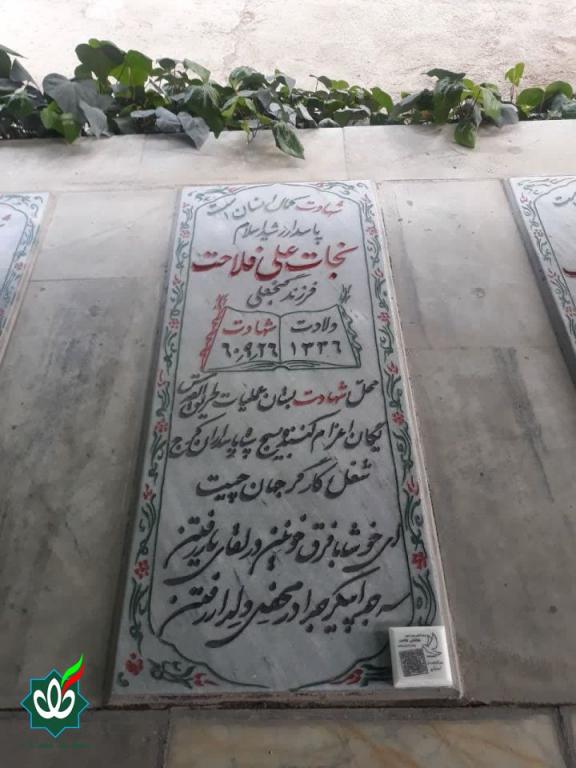 شهادت کمال انسان است
پاسدار رشید اسلام
نجات علی فلاحت
فرزند گنجعلی
ولادت شهادت
۱۳۳۶ ۶۰٫۹٫۲۶
محل شهادت بستان عملیات طریق القدس
یگان اعزام کننده بسیج سپاه پاسداران کرج
شغل کارگر جهان چیت
ای خوشا با فرق خونین در لقای یار رفتن
سر جدا پیکر جدا در محفل دلدار رفتن